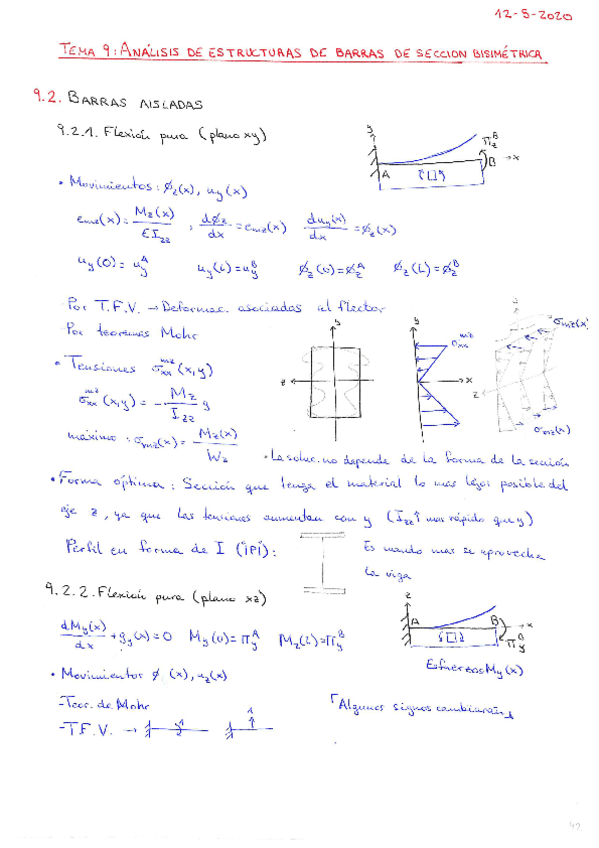 12-5-2020
TEMA 9: ANÁLISIS DE ESTRUCTURAS DE BARRAS DE SECCION BISIMÉTRICA
9.2. BARRAS AISLADAS
9.2.1. Flexión pura (plano xy)
y π_z^B B → x A
• Movimientos: ϕ_z(x), u_y(x)
e_mz(x) = M_z(x) / E I_zz , dϕ_z/dx = e_mz(x) du_y(x)/dx = ϕ_z(x)
u_y(0) = u_y^A u_y(L) = u_y^B ϕ_z(0) = ϕ_z^A ϕ_z(L) = ϕ_z^B
Por T.F.V. → Deformac. asociadas al flector
Por teoremas Mohr
• Tensiones σ_xx^mz (x,y)
σ_xx^mz (x,y) = - M_z / I_zz y
máximo: σ_mz(x) = M_z(x) / W_z
y z y σ_xx^mz x z σ_mz(x) σ_mz(x)
• La soluc. no depende de la forma de la sección
• Forma óptima: Sección que tenga el material lo mas lejos posible del
eje z, ya que las tensiones aumentan con y (I_zz ↑ mas rápido que y)
Perfil en forma de I (IPI):
Es cuando mas se aprovecha
la viga
9.2.2. Flexión pura (plano xz)
z A B → x π_y^B
dM_y(x)/dx + q_y(x) = 0 M_y(0) = π_y^A M_z(L) = π_y^B
Esfuerzos M_y(x)
• Movimientos ϕ (x), u_z(x)
- Teor. de Mohr
- T.F.V. → 1 1
「Algunos signos cambiarán」
42